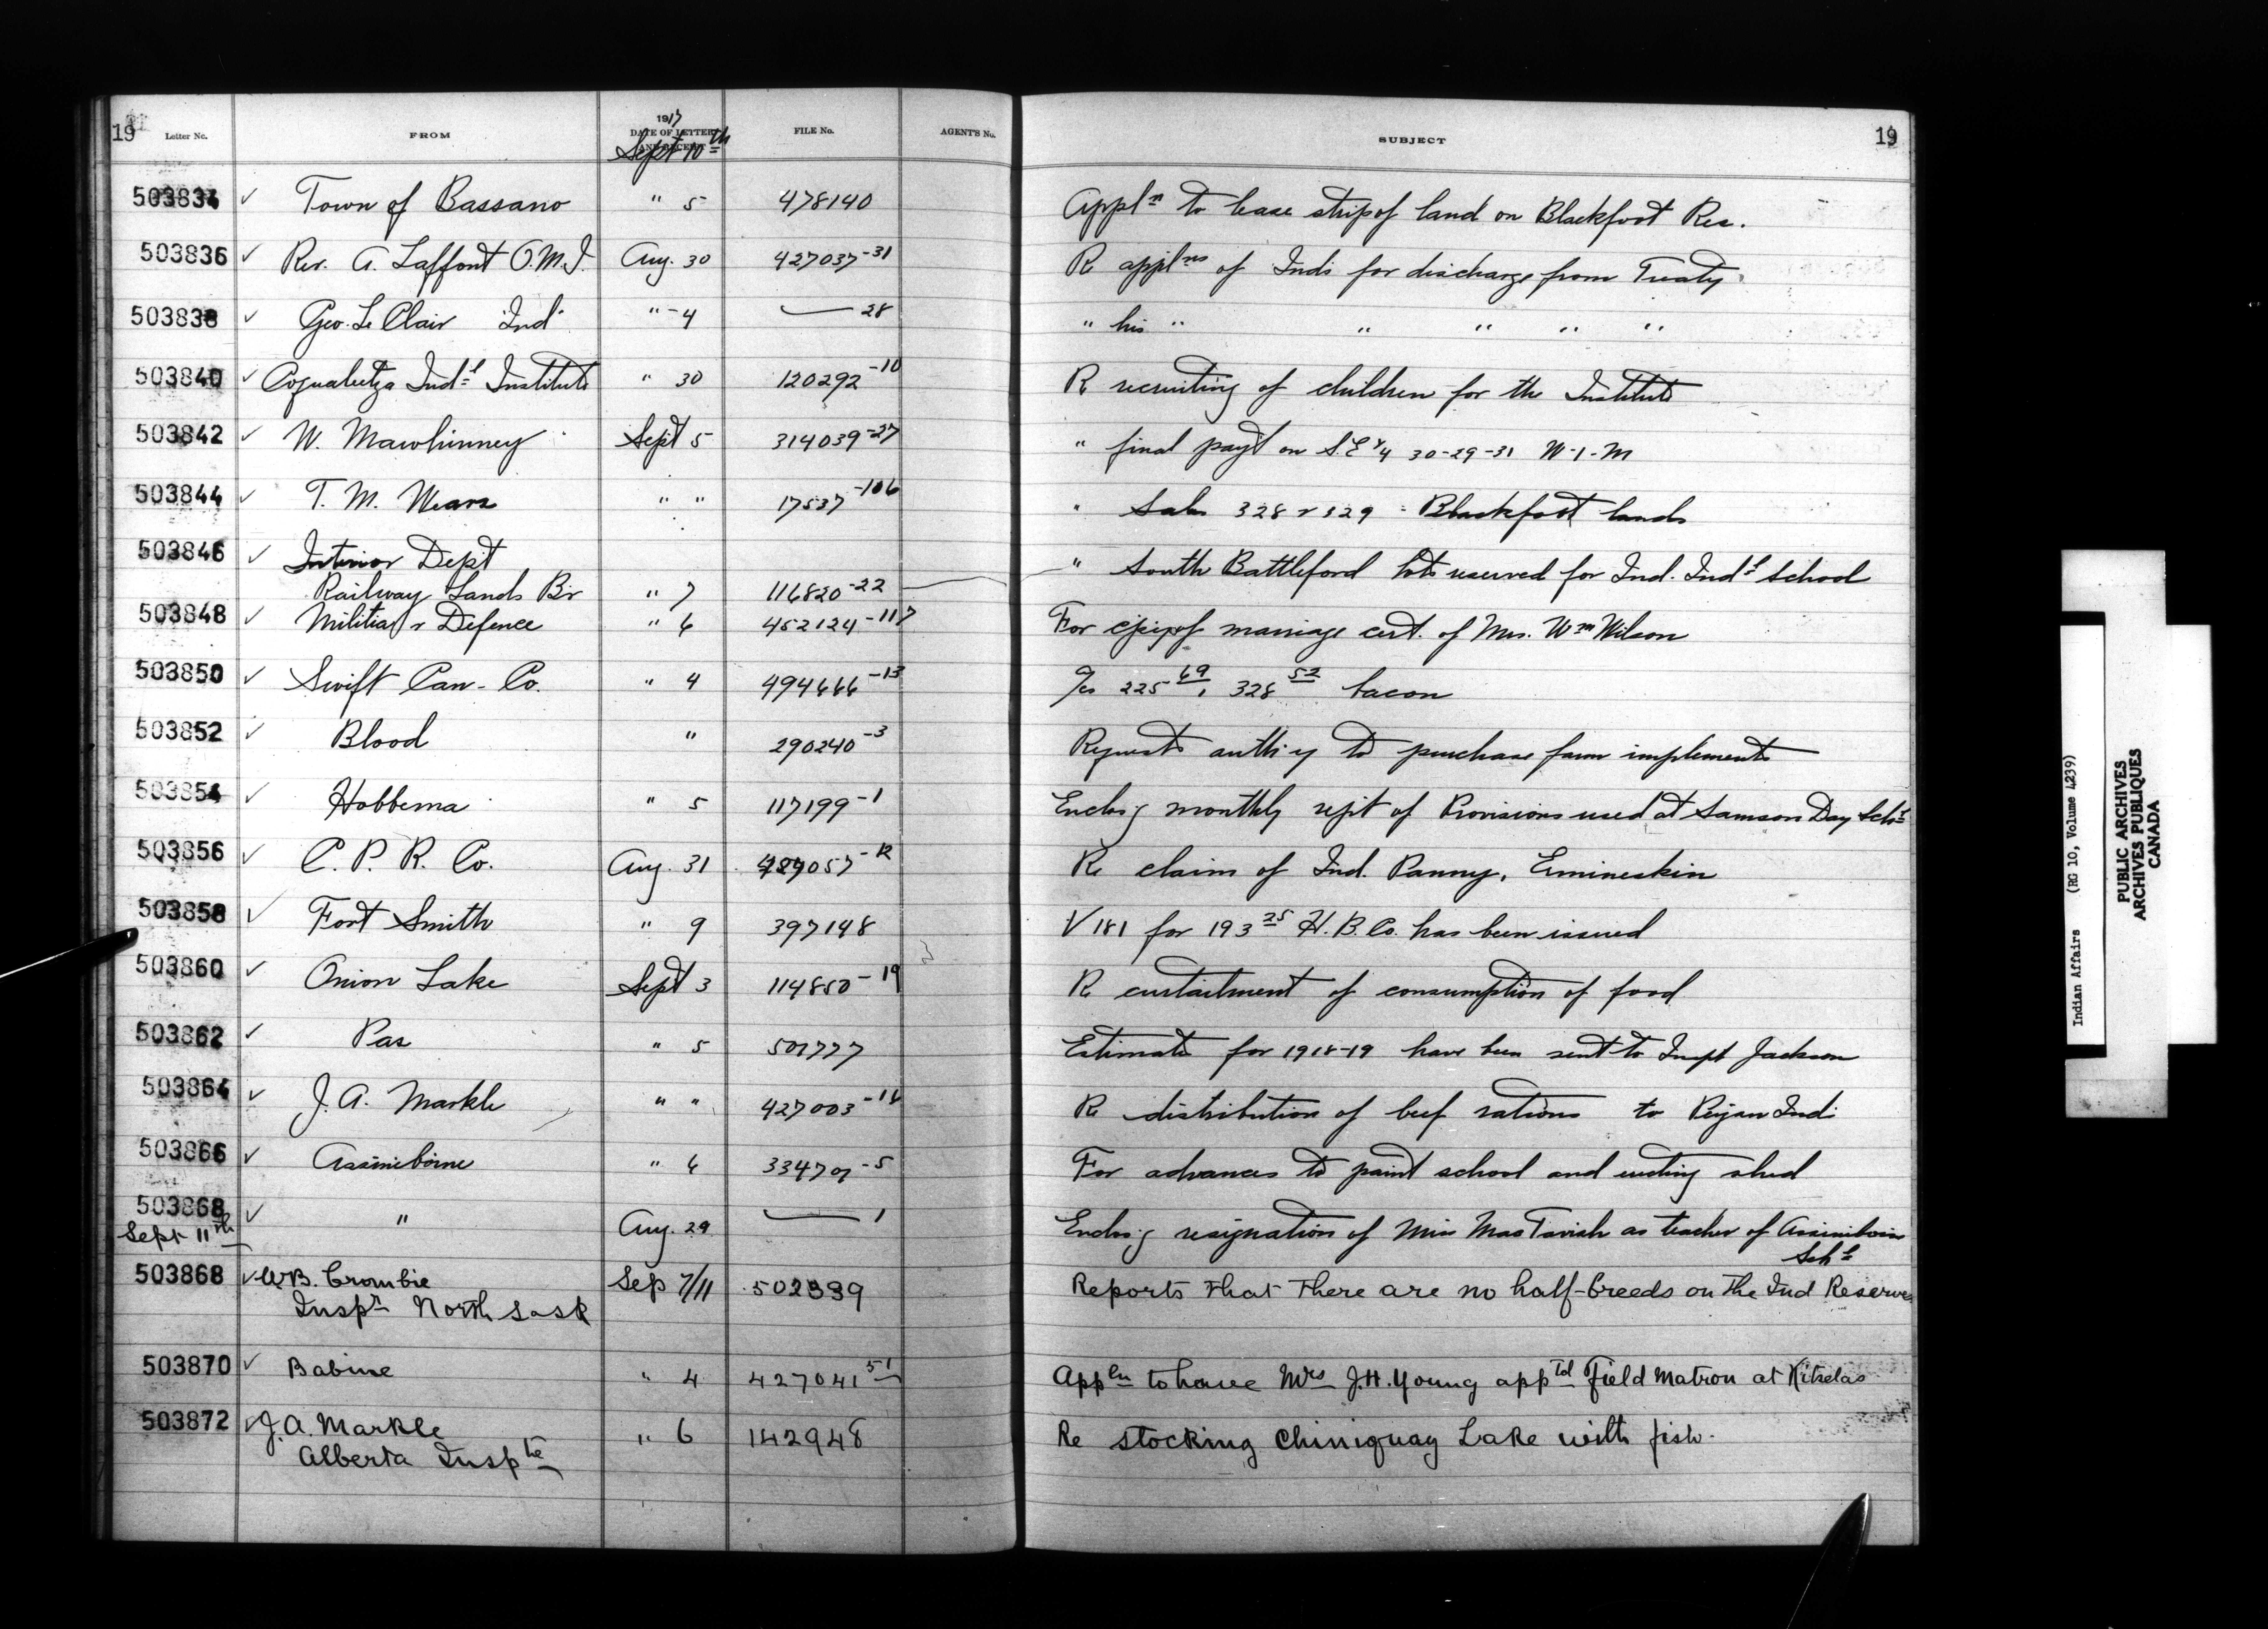 19 Letter No. FROM 1917 DATE OF LETTER AND RECEIPT FILE No. AGENT'S No. SUBJECT 19
Sept 10th
503834 ✓ Town of Bassano " 5 478140 Appln to lease strip of land on Blackfoot Res.
503836 ✓ Rev. A. Laffont O.M.I. Aug. 30 427037-31 R applns of Inds for discharge from Treaty
503838 ✓ Geo. Le Clair Ind " 4 — 28 " his " " " " "
503840 ✓ Coqualeetza Indl Institute " 30 120292-10 R recruiting of children for the Institute
503842 ✓ W. Mawhinney Sept 5 314039-27 " final payt on S.E 1/4 30-29-31 W-1-M
503844 ✓ T. M. Wears " " 17537-106 " Sales 328 & 329 - Blackfoot lands
503846 ✓ Interior Dept
Railway Lands Br " 7 116820-22 " South Battleford lots reserved for Ind. Indl School
503848 ✓ Militia & Defence " 6 452124-117 For copy of marriage cert. of Mrs. Wm Wilson
503850 ✓ Swift Can- Co. " 4 494666-13 a/cs 225 69, 328 52 bacon
503852 ✓ Blood " 290240-3 Requests auth'y to purchase farm implements
503854 ✓ Hobbema " 5 117199-1 Enclos'g monthly rept of Provisions used at Samson Day Schl
503856 ✓ C. P. R. Co. Aug. 31 057-12 R claim of Ind. Panny, Ermineskin
503858 ✓ Fort Smith " 9 397148 V 181 for 193 25 H. B. Co. has been issued
503860 ✓ Onion Lake Sept 3 114850-19 R curtailment of consumption of food
503862 ✓ Pas " 5 501777 Estimates for 1918-19 have been sent to Inspt Jackson
503864 ✓ J. A. Markle " " 427003-11 R distribution of beef rations to Peigan Inds
503866 ✓ Assiniboine " 6 334701-5 For advances to paint school and shed
503868 ✓ " Aug. 29 — 1 Enclos'g resignation of Miss MacTavish as teacher of Assiniboine
Schl
Sept 11th
503868 ✓ W B. Crombie Sep 7/11 502339 Reports that there are no half-breeds on the Ind Reserves
Inspr North Sask
503870 ✓ Babine " 4 427041 51 Appln to have Mrs J.H. Young apptd Field Matron at Kitselas
503872 ✓ J. A. Markle " 6 142948 Re stocking Chiniquay Lake with fish.
Alberta Inspte
Indian Affairs (RG 10, Volume 4239)
PUBLIC ARCHIVES
ARCHIVES PUBLIQUES
CANADA